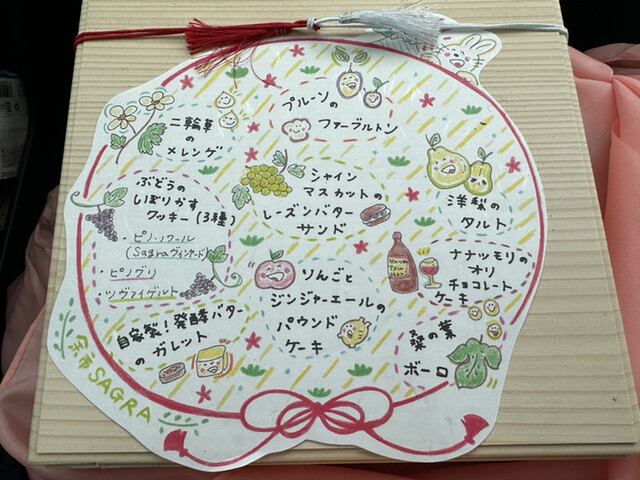 二輪草
の
メレンゲ
プルーンの
ファーブルトン
ぶどうの
しぼりかす
クッキー(3種)
・ピノ・ノワール
(Sagraヴィンヤード)
・ピノグリ
・ツヴァイゲルト
シャイン
マスカットの
レーズンバター
サンド
洋梨の
タルト
りんごと
ジンジャーエールの
パウンド
ケーキ
ナナツモリの
オリ
チョコレート
ケーキ
自家製!発酵バター
のガレット
桑の葉
ボーロ
余市SAGRA